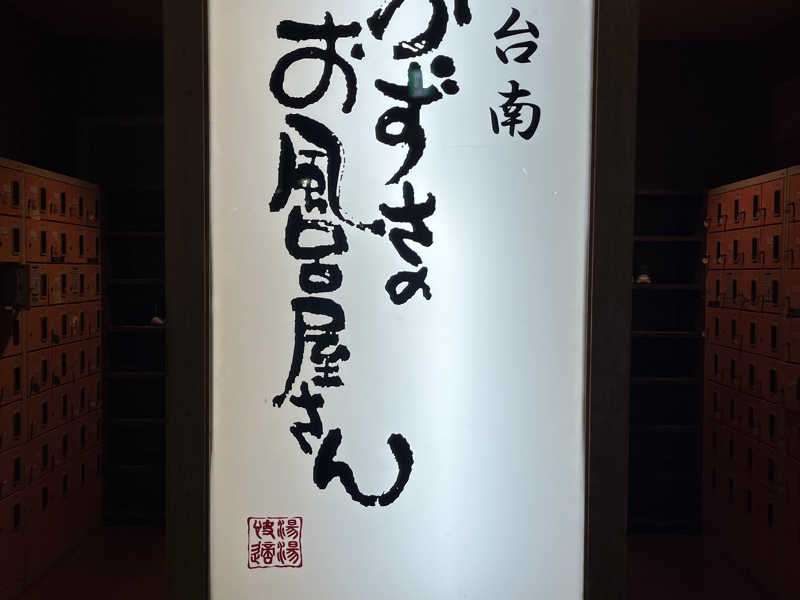 台南
かずさの
お風呂屋さん
湯湯
快適